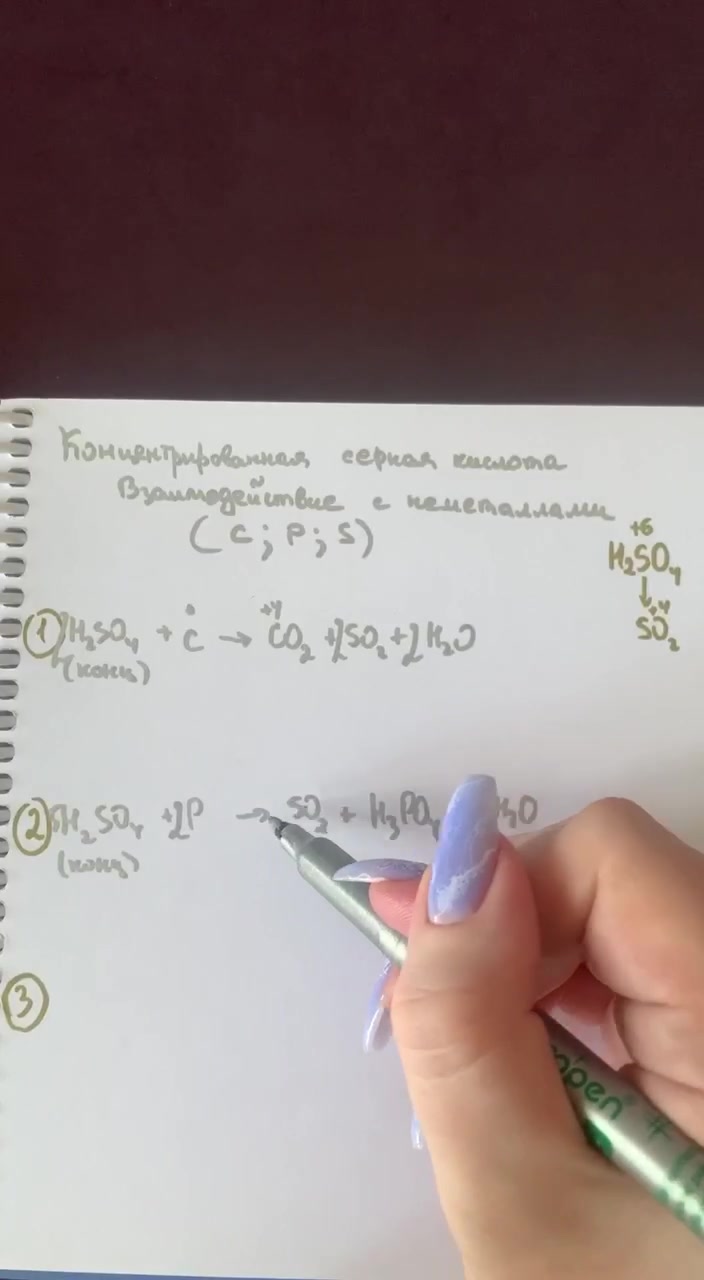 Концентрированная серная кислота
Взаимодействие с неметаллами
(C; P; S)
+6
H₂SO₄
↓
+4
SO₂
① 2H₂SO₄ + C⁰ → C⁺⁴O₂ + 2SO₂ + 2H₂O
(конц)
② 5H₂SO₄ + 2P → SO₂ + H₃PO₄ H₂O
(конц)
③